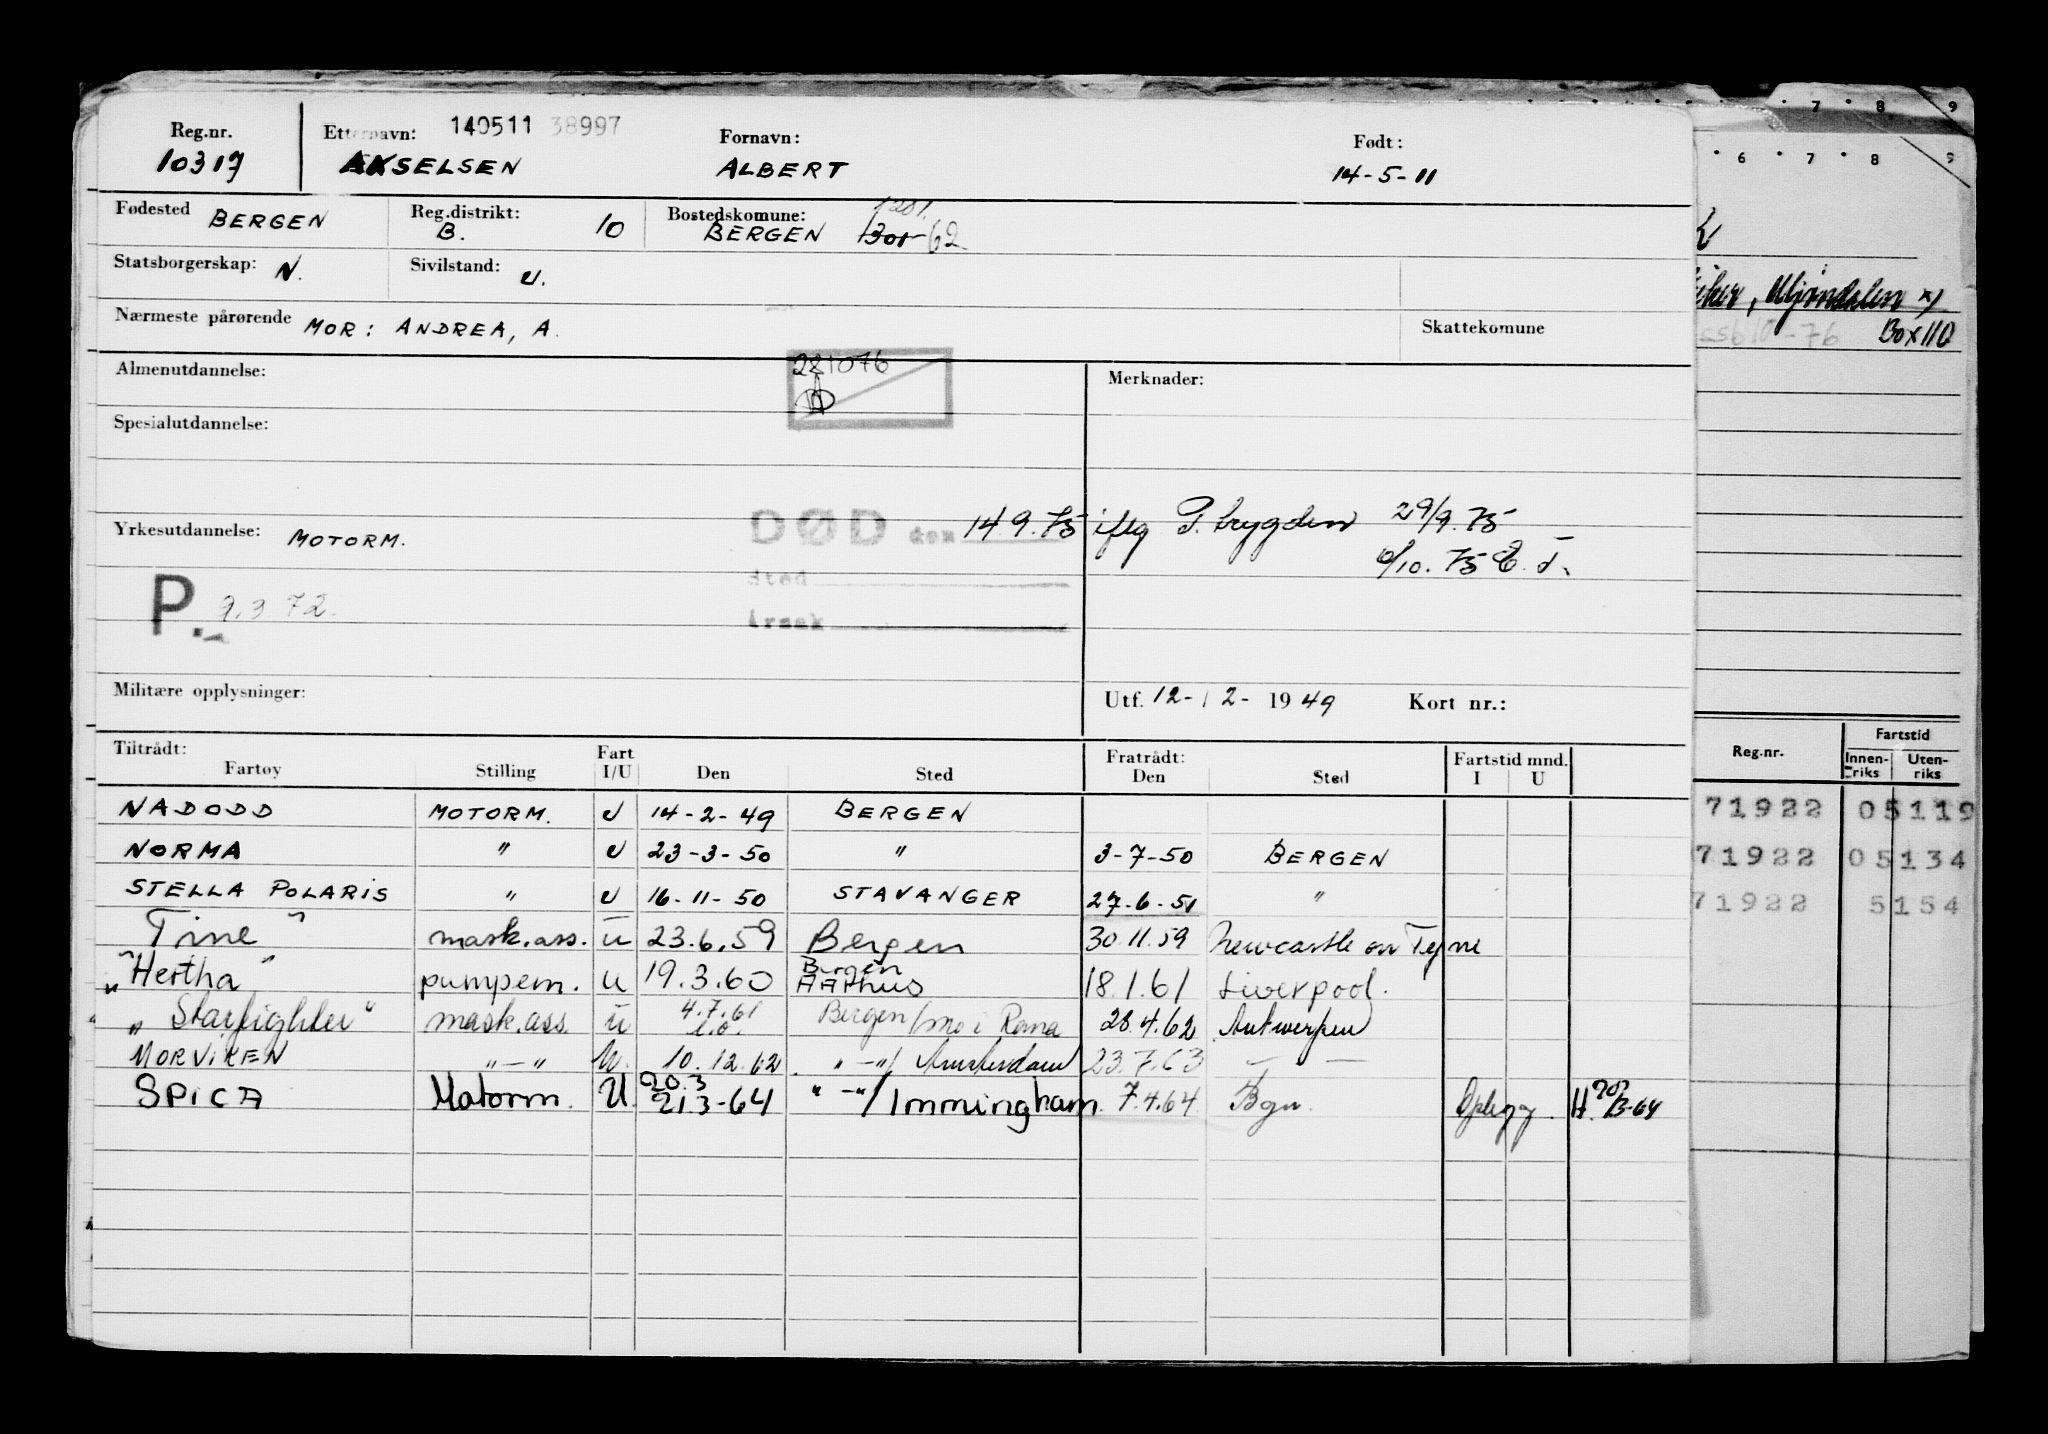 7 8 9
Reg.nr. Etternavn: 140511 38997 Fornavn: Født:
10317 AKSELSEN ALBERT 14-5-11
6 7 8 9
Fødested BERGEN Reg.distrikt: B. 10 Bostedskomune: BERGEN 1301 62
Statsborgerskap: N. Sivilstand: U.
Nærmeste pårørende MOR: ANDREA, A. Skattekomune
Mjøndalen x)
Box 110
Almenutdannelse: 221076 Merknader:
Spesialutdannelse:
Yrkesutdannelse: MOTORM. DØD den 14.9.75 iflg P. trygden 29/9.75
Sted 6/10.75 E.T.
P. 9.3 72. Årsak
Militære opplysninger: Utf. 12-12-1949 Kort nr.:
Tiltrådt: Fart Fratrådt: Fartstid mnd.
Fartøy Stilling I/U Den Sted Den Sted I U
Reg.nr. Fartstid
Innenriks Utenriks
NADODD MOTORM. U 14-2-49 BERGEN
71922 05119
NORMA " U 23-3-50 " 3-7-50 BERGEN
71922 05134
STELLA POLARIS " U 16-11-50 STAVANGER 27-6-51 "
71922 5154
Tine" mask.ass. u 23.6.59 Bergen 30.11.59 Newcastle on Tyne
"Hertha" pumpem. u 19.3.60 Bergen Aarhus 18.1.61 Liverpool.
"Starfighter" mask.ass. u 4.7.61 Bergen/Mo i Rana 28.4.62 Antwerpen
MORVIKEN "-" U. 10.12.62 "-"/Amsterdam 23.7.63 — —
SPICA Motorm. U. 20.3 21.3-64 "-"/Immingham. 7.4.64 Bgn. Opplegg. H.